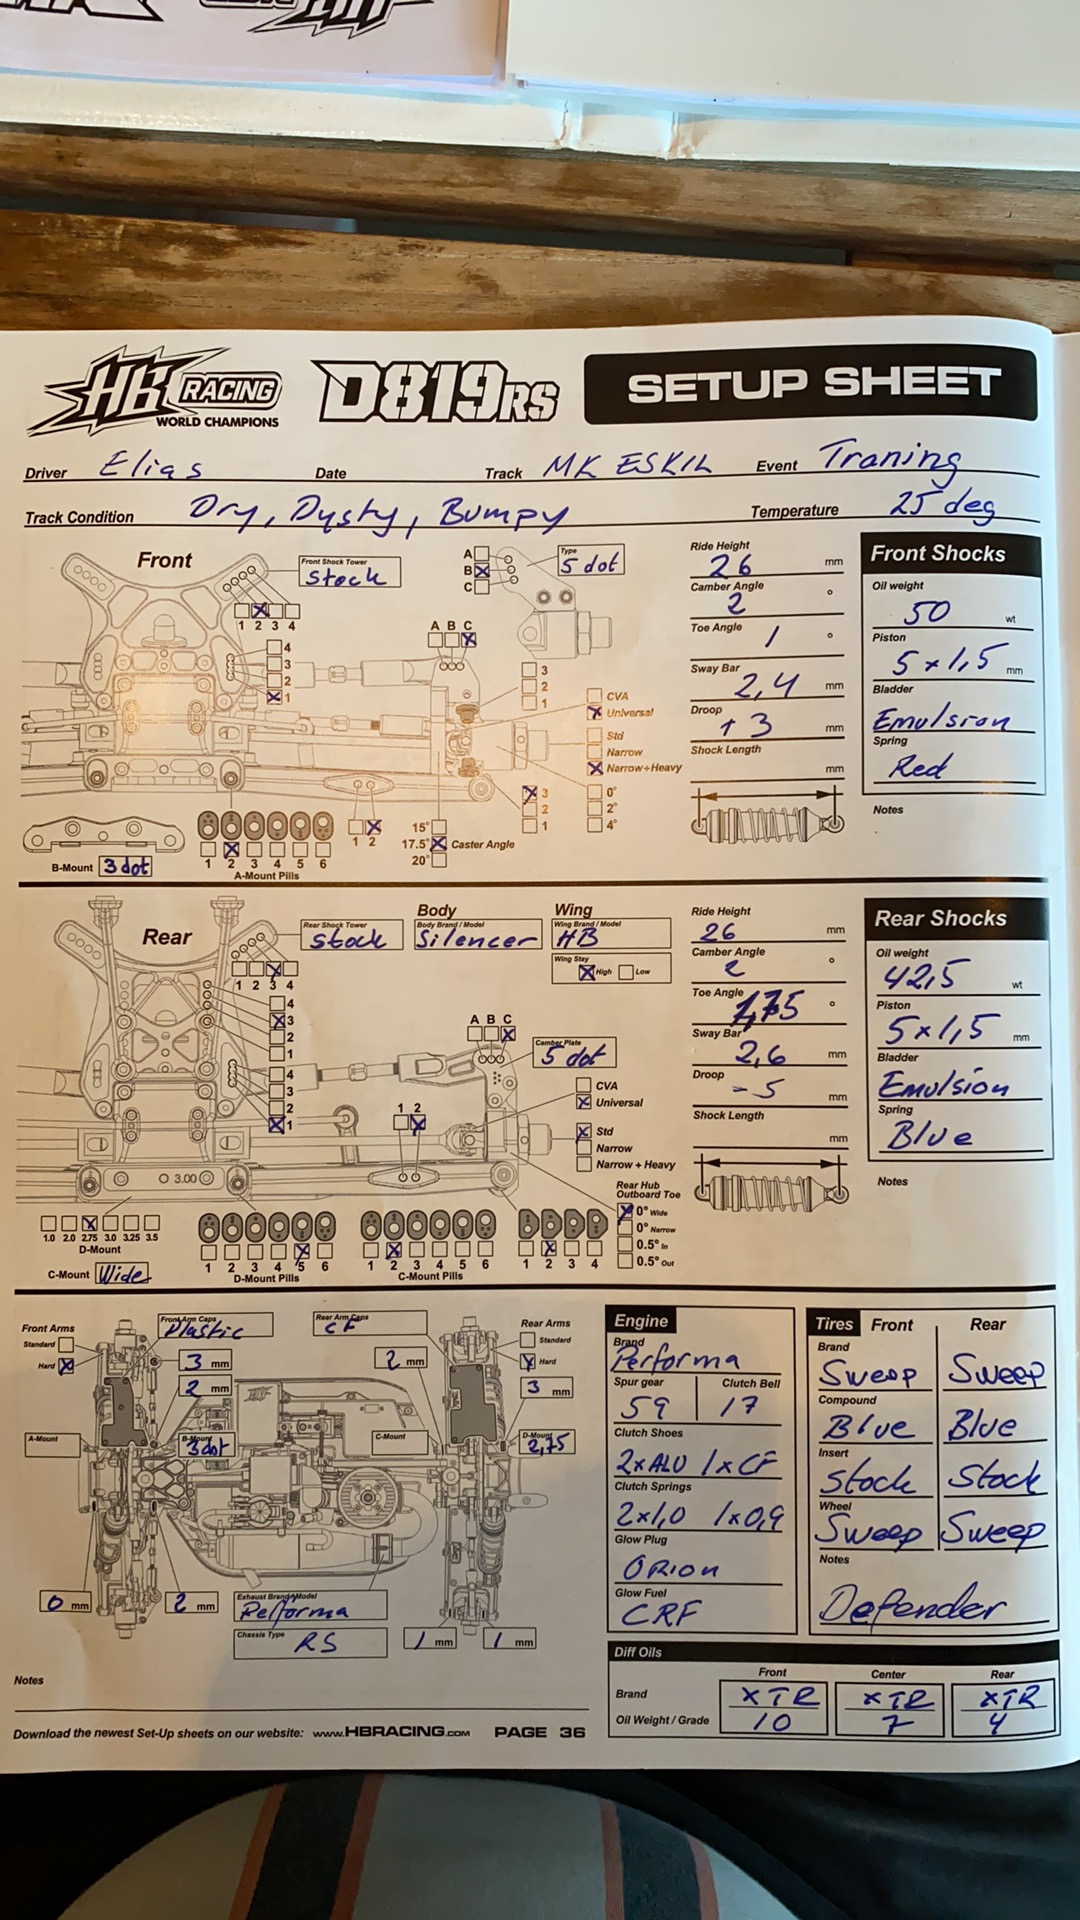 HB RACING
WORLD CHAMPIONS
D819RS
SETUP SHEET
Driver Elias Date Track MK ESKIL Event Traning
Track Condition Dry, Dysty, Bumpy Temperature 25 deg
Front
Front Shock Tower
Stock
1 2 3 4
4
3
2
1
A
B
C
Type
5 dot
A B C
3
2
1
CVA
Universal
Std
Narrow
Narrow+Heavy
3
2
1
0°
2°
4°
15°
17.5° Caster Angle
20°
1 2
B-Mount 3 dot
1 2 3 4 5 6
A-Mount Pills
Ride Height
26 mm
Camber Angle
2 °
Toe Angle
1 °
Sway Bar
2,4 mm
Droop
+3 mm
Shock Length
mm
Front Shocks
Oil weight
50 wt
Piston
5x1,5 mm
Bladder
Emulsion
Spring
Red
Notes
Rear
Rear Shock Tower
Stock
Body
Body Brand / Model
Silencer
Wing
Wing Brand / Model
HB
Wing Stay
High Low
1 2 3 4
4
3
2
1
4
3
2
1
A B C
Camber Plate
5 dot
CVA
Universal
Std
Narrow
Narrow + Heavy
1 2
3.00
Rear Hub
Outboard Toe
0° Wide
0° Narrow
0.5° In
0.5° Out
1.0 2.0 2.75 3.0 3.25 3.5
D-Mount
C-Mount Wide
1 2 3 4 5 6
D-Mount Pills
1 2 3 4 5 6
C-Mount Pills
1 2 3 4
Ride Height
26 mm
Camber Angle
2 °
Toe Angle
1,75 °
Sway Bar
2,6 mm
Droop
-5 mm
Shock Length
mm
Rear Shocks
Oil weight
42,5 wt
Piston
5x1,5 mm
Bladder
Emulsion
Spring
Blue
Notes
Front Arms
Standard
Hard
Front Arm Caps
Plastic
3 mm
2 mm
A-Mount
B-Mount
3dot
0 mm
2 mm
Rear Arm Caps
CF
2 mm
C-Mount
Rear Arms
Standard
Hard
3 mm
D-Mount
2,75
Exhaust Brand/Model
Performa
Chassis Type
RS
1 mm
1 mm
Notes
Engine
Brand
Performa
Spur gear Clutch Bell
59 17
Clutch Shoes
2xALU 1xCF
Clutch Springs
2x1,0 1x0,9
Glow Plug
ORION
Glow Fuel
CRF
Tires Front Rear
Brand
Sweep Sweep
Compound
Blue Blue
Insert
Stock Stock
Wheel
Sweep Sweep
Notes
Defender
Diff Oils
Front Center Rear
Brand XTR XTR XTR
Oil Weight / Grade 10 7 4
Download the newest Set-Up sheets on our website: www.HBRACING.com PAGE 36